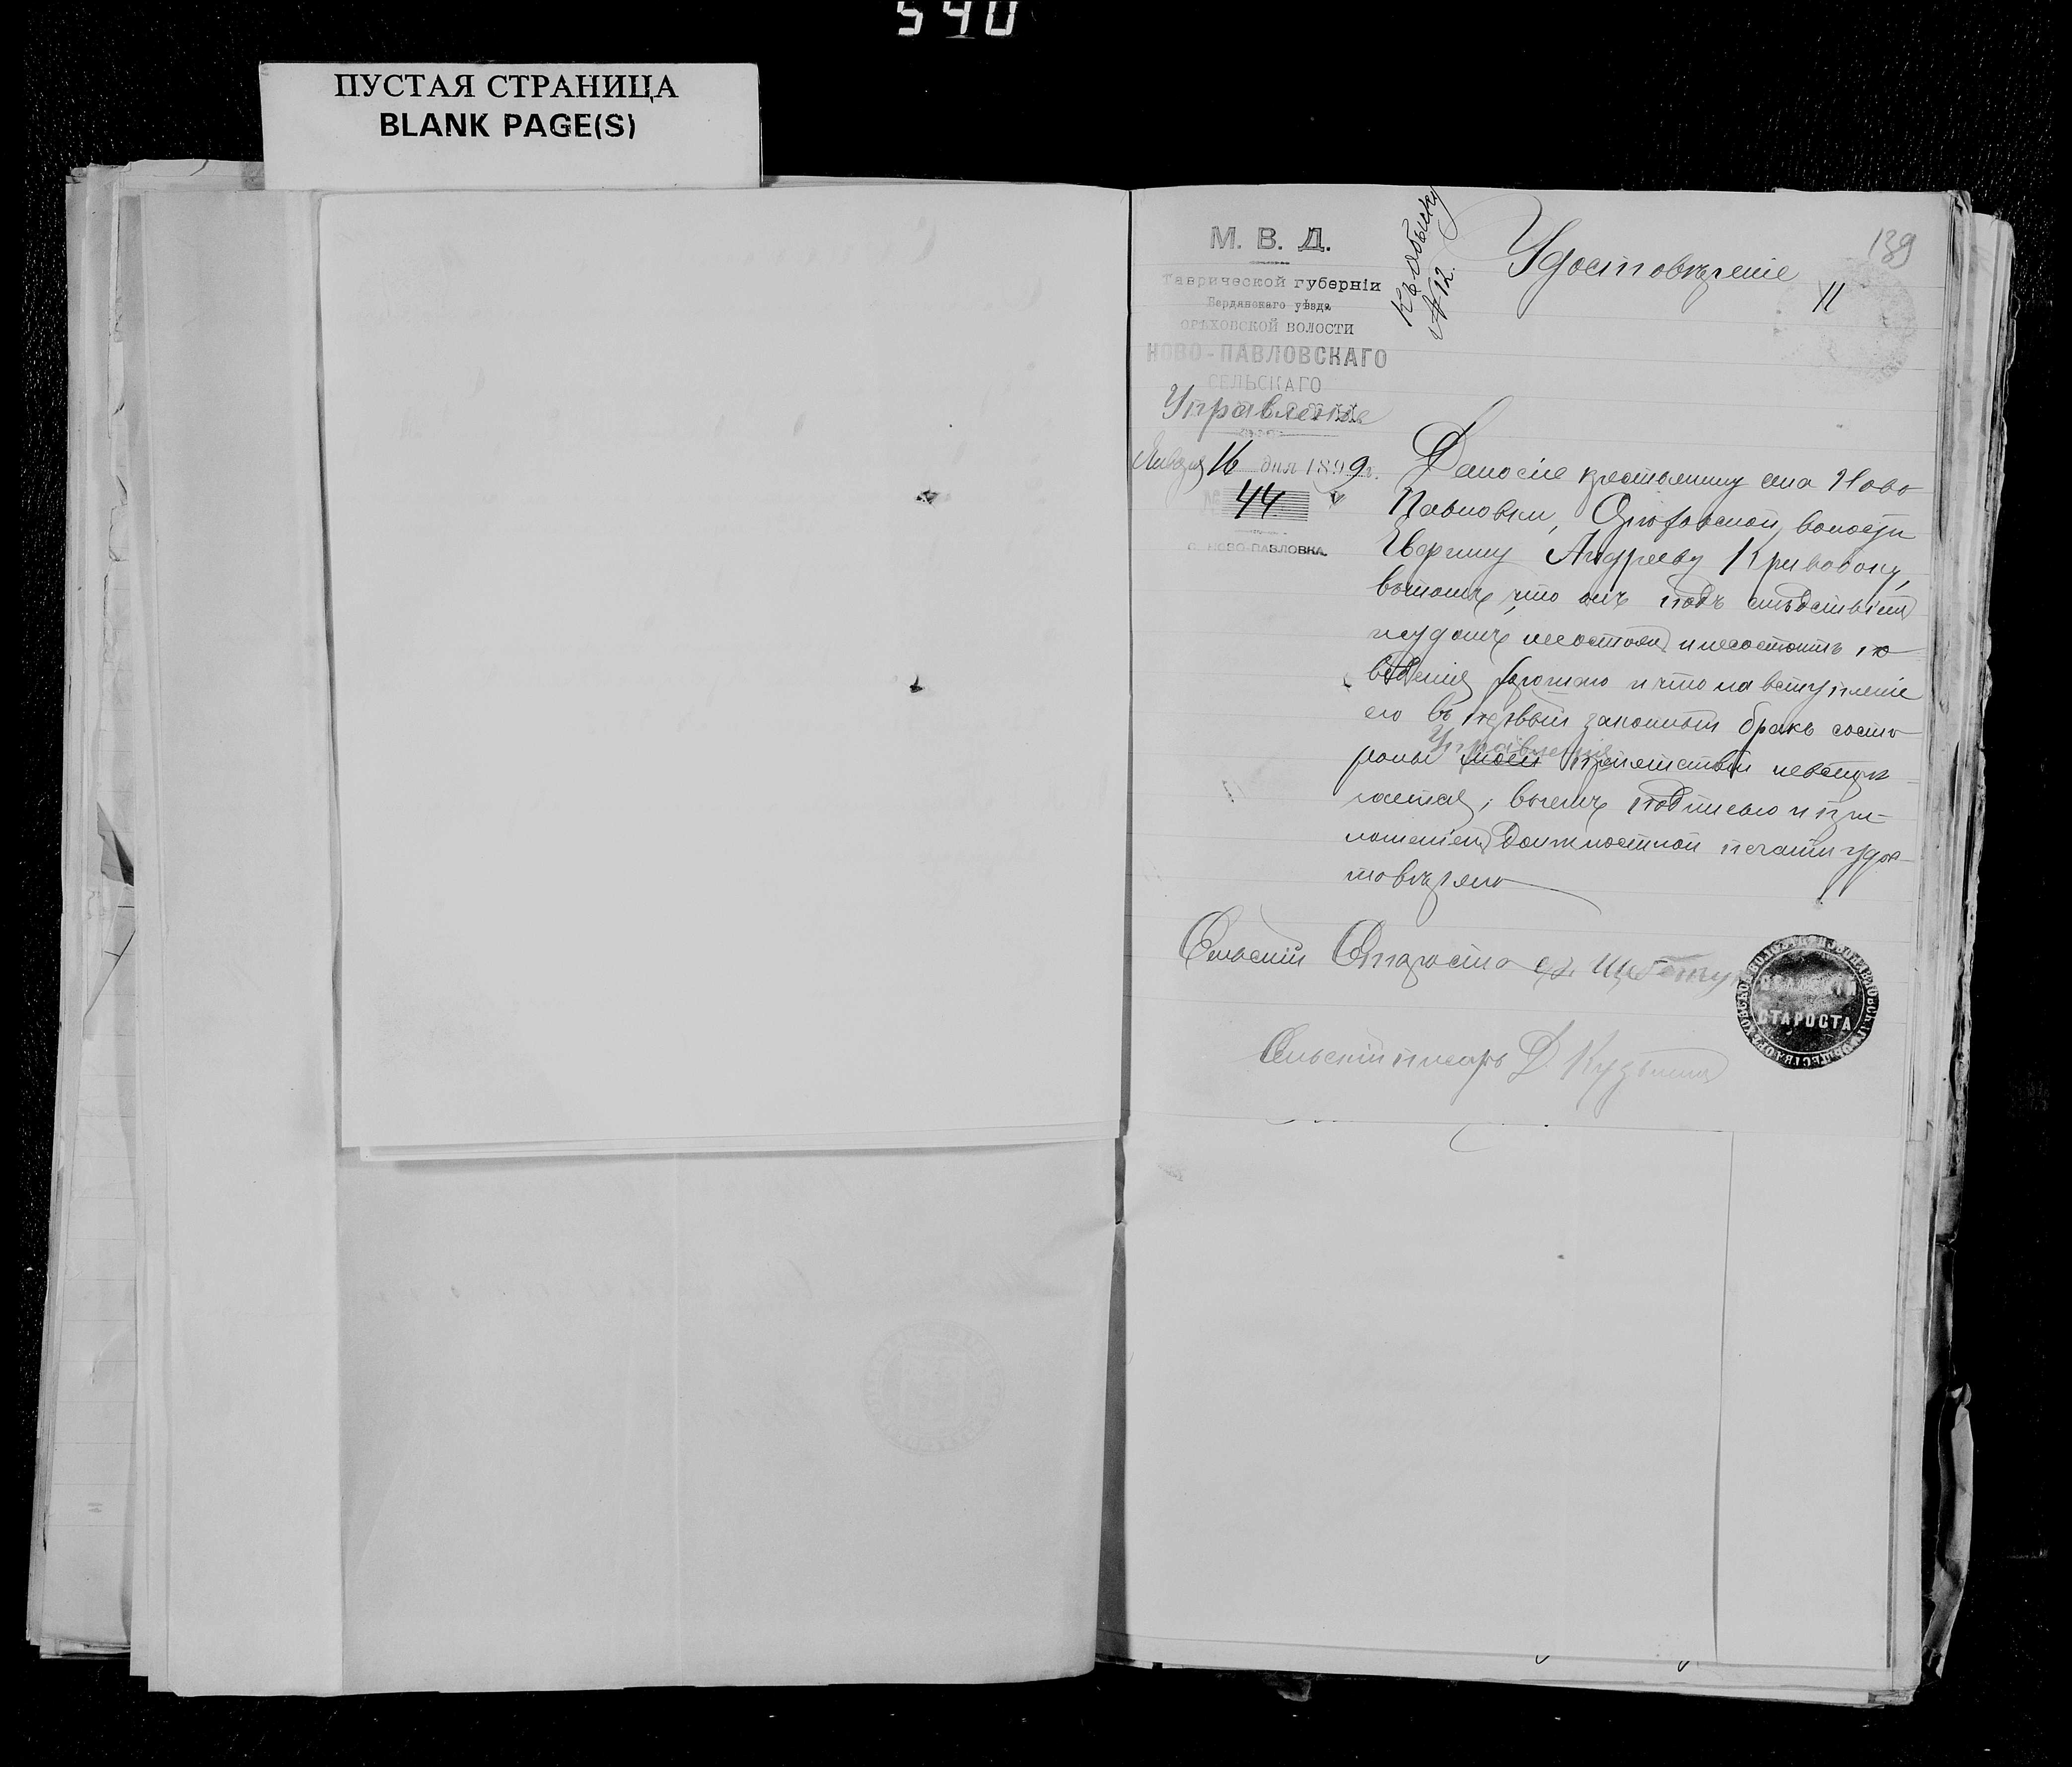 540
ПУСТАЯ СТРАНИЦА
BLANK PAGE(S)
139
М. В. Д.
Таврической губерніи
Бердянскаго уѣзда
ОРѢХОВСКОЙ ВОЛОСТИ
НОВО-ПАВЛОВСКАГО
СЕЛЬСКАГО
Управленіе
Января 16 дня 1899 г.
№ 44
с. НОВО-ПАВЛОВКА.
Къ обыску
№ 12.
Удостовѣреніе
11
Дано сіе крестьянину села Ново
Павловки, Орѣховской волости
Андрееву Кривобоку,
вътомъ, что онъ подъ слѣдствіемъ
исудомъ несостоялъ инесостоитъ по
веденія хорошаго и что на вступленіе
его въ первый законный бракъ состо
роны моей Управленія препятствій невстрѣ
чается, вчемъ подписью и при
ложеніемъ должностной печати удос
товѣряю
Сельскій Староста
Сельскій писарь Д. Кузьминъ
СЕЛЬСКІЙ
СТАРОСТА